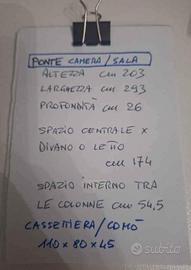 PONTE CAMERA/SALA
ALTEZZA cm 203
LARGHEZZA cm 293
PROFONDITÀ cm 26
SPAZIO CENTRALE X
DIVANO O LETTO
cm 174
SPAZIO INTERNO TRA
LE COLONNE cm 54,5
CASSETTIERA/COMÒ
110 x 80 x 45
subito